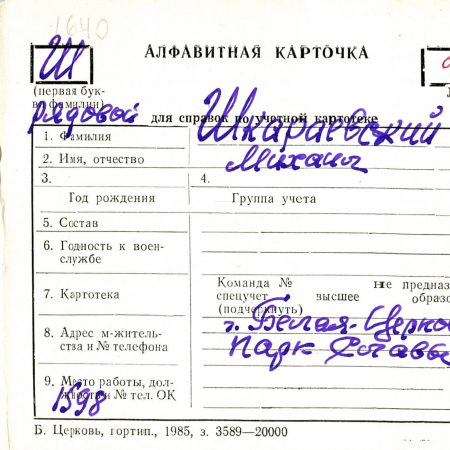 1640
Ш
АЛФАВИТНАЯ КАРТОЧКА
(первая бук-
ва фамилии)
рядовой
для справок по учетной картотеке
1. Фамилия
Шкараевский
2. Имя, отчество
Михаил
3.
4.
Год рождения
Группа учета
5. Состав
6. Годность к воен-
службе
7. Картотека
Команда № не предназ
спецучет высшее образо
(подчеркнуть)
8. Адрес м-житель-
ства и № телефона
г. Белая-Церко
парк
9. Место работы, дол-
жность и № тел. ОК
1598
Б. Церковь, гортип., 1985, з. 3589—20000